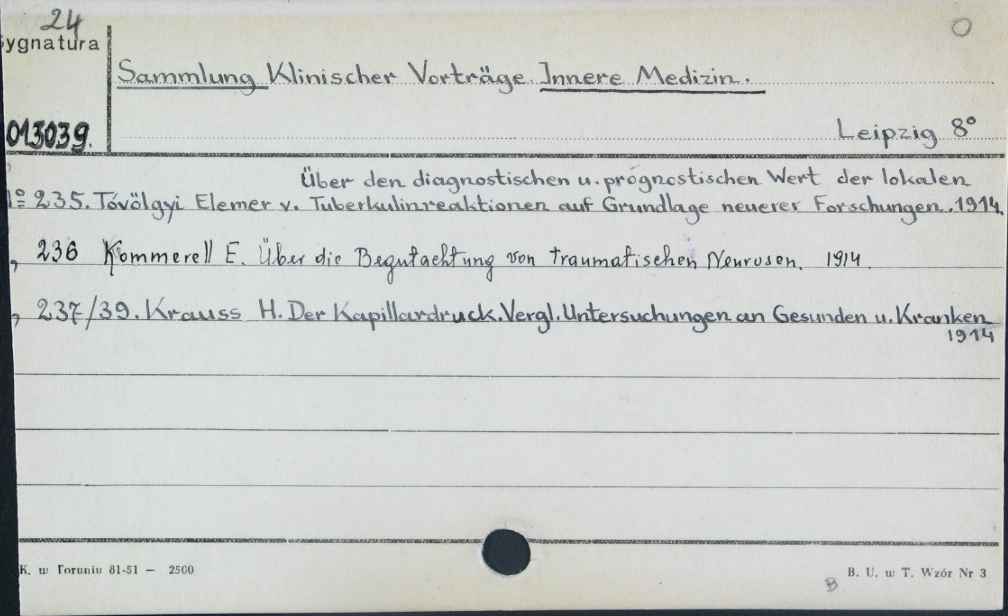 24
ygnatura
Sammlung Klinischer Vorträge. Innere Medizin.
013039.
Leipzig 8°
Über den diagnostischen u. prognostischen Wert der lokalen
№ 235. Tóvölgyi Elemer v. Tuberkulinreaktionen auf Grundlage neuerer Forschungen. 1914.
„ 236 Kommerell E. Über die Begutachtung von traumatischen Neurosen. 1914.
„ 237/39. Krauss H. Der Kapillardruck. Vergl. Untersuchungen an Gesunden u. Kranken
1914
K. w Toruniu 81-51 — 2500
B. U. w T. Wzór Nr 3
B